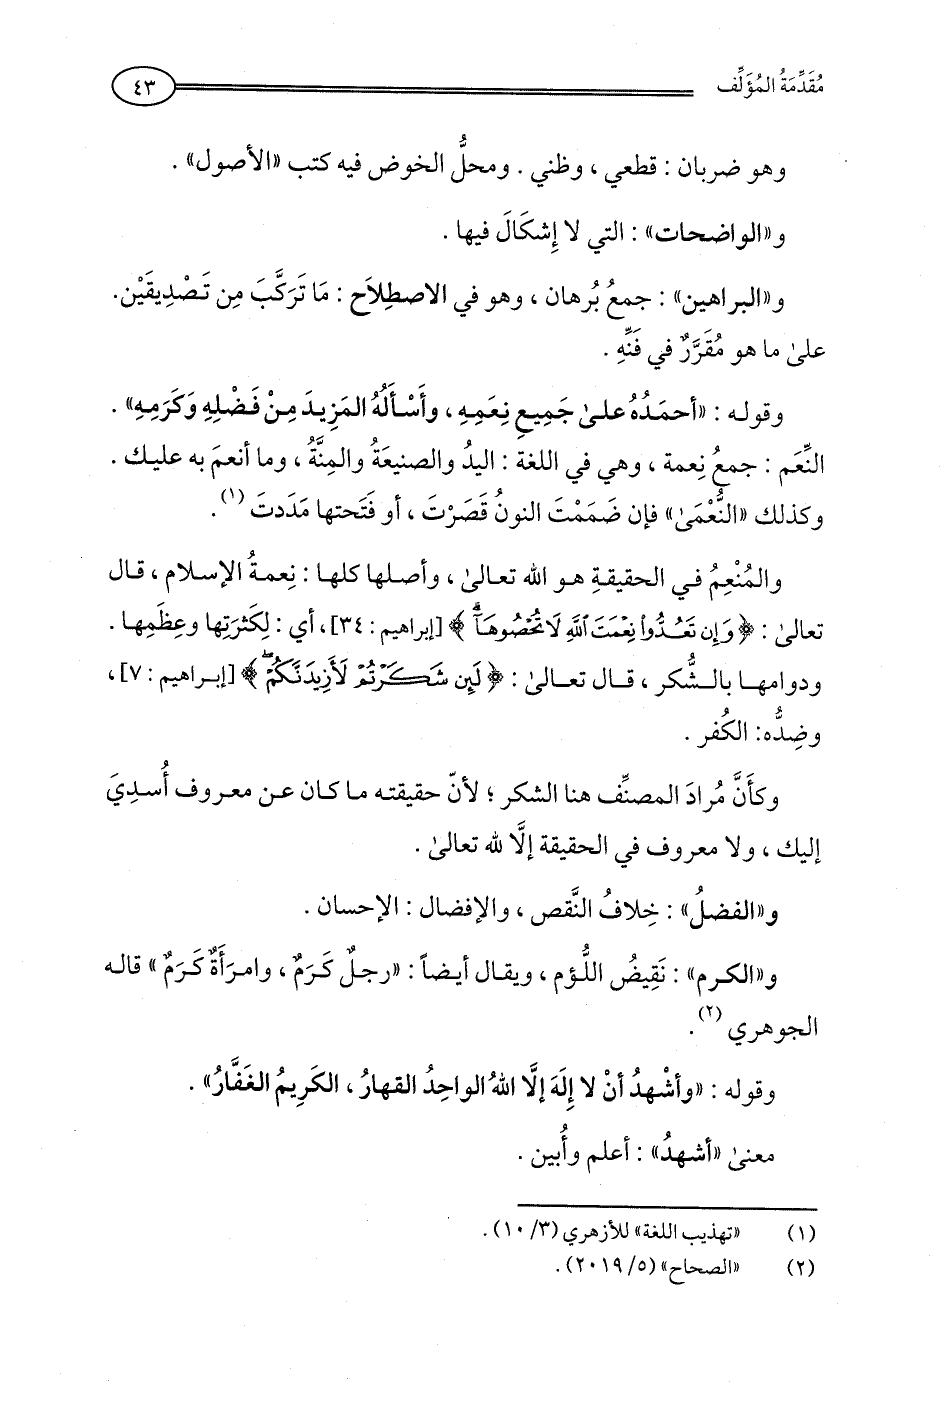 مُقَدِّمَةُ المُؤَلِّف
٤٣
وهو ضربان : قطعي ، وظني . ومحلُّ الخوض فيه كتب «الأصول» .
و«الواضحات» : التي لا إِشكَالَ فيها .
و«البراهين» : جمعُ بُرهان ، وهو في الاصطِلاَح : مَا تَرَكَّبَ مِن تَصْدِيقَيْن.
علىٰ ما هو مُقَرَّرٌ في فَنِّهِ .
وقوله : «أحمَدُهُ علىٰ جَمِيعِ نِعَمِهِ ، وأَسْأَلُهُ المَزِيدَ مِنْ فَضْلِهِ وَكَرَمِهِ» .
النِّعَم : جمعُ نِعمة ، وهي في اللغة : اليدُ والصنيعَةُ والمِنَّةُ ، وما أنعمَ به عليك .
وكذلك «النُّعْمَىٰ» فإن ضَمَمْتَ النونُ قَصَرْتَ ، أو فَتَحتها مَدَدتَ (١).
والمُنْعِمُ في الحقيقةِ هو الله تعالىٰ ، وأصلها كلها : نِعمةُ الإسلام ، قال
تعالىٰ : ﴿وَإِن تَعُدُّوا۟ نِعْمَتَ ٱللَّهِ لَا تُحْصُوهَآ ﴾ [إبراهيم : ٣٤]، أي : لِكَثرَتِها وعِظَمِها .
ودوامها بالشُّكر ، قال تعالىٰ : ﴿ لَئِن شَكَرْتُمْ لَأَزِيدَنَّكُمْ ﴾ [إبراهيم : ٧] ،
وضِدُّه: الكُفر .
وكأَنَّ مُرادَ المصنِّف هنا الشكر ؛ لأنّ حقيقته ما كان عن معروف أُسدِيَ
إليك ، ولا معروف في الحقيقة إلَّا لله تعالىٰ .
و«الفضلُ» : خِلافُ النَّقص ، والإفضال : الإحسان .
و«الكرم» : نَقِيضُ اللُّؤم ، ويقال أيضاً : «رجلٌ كَرَمٌ ، وامرَأَةٌ كَرَمٌ » قاله
الجوهري (٢) .
وقوله : «وأشْهدُ أنْ لا إِلَهَ إلَّا اللهُ الواحِدُ القهارُ ، الكَرِيمُ الغَفَّارُ» .
معنىٰ «أشهدُ» : أعلم وأُبين .
(١) «تهذيب اللغة» للأزهري (٣/ ١٠) .
(٢) «الصحاح» (٥/ ٢٠١٩) .